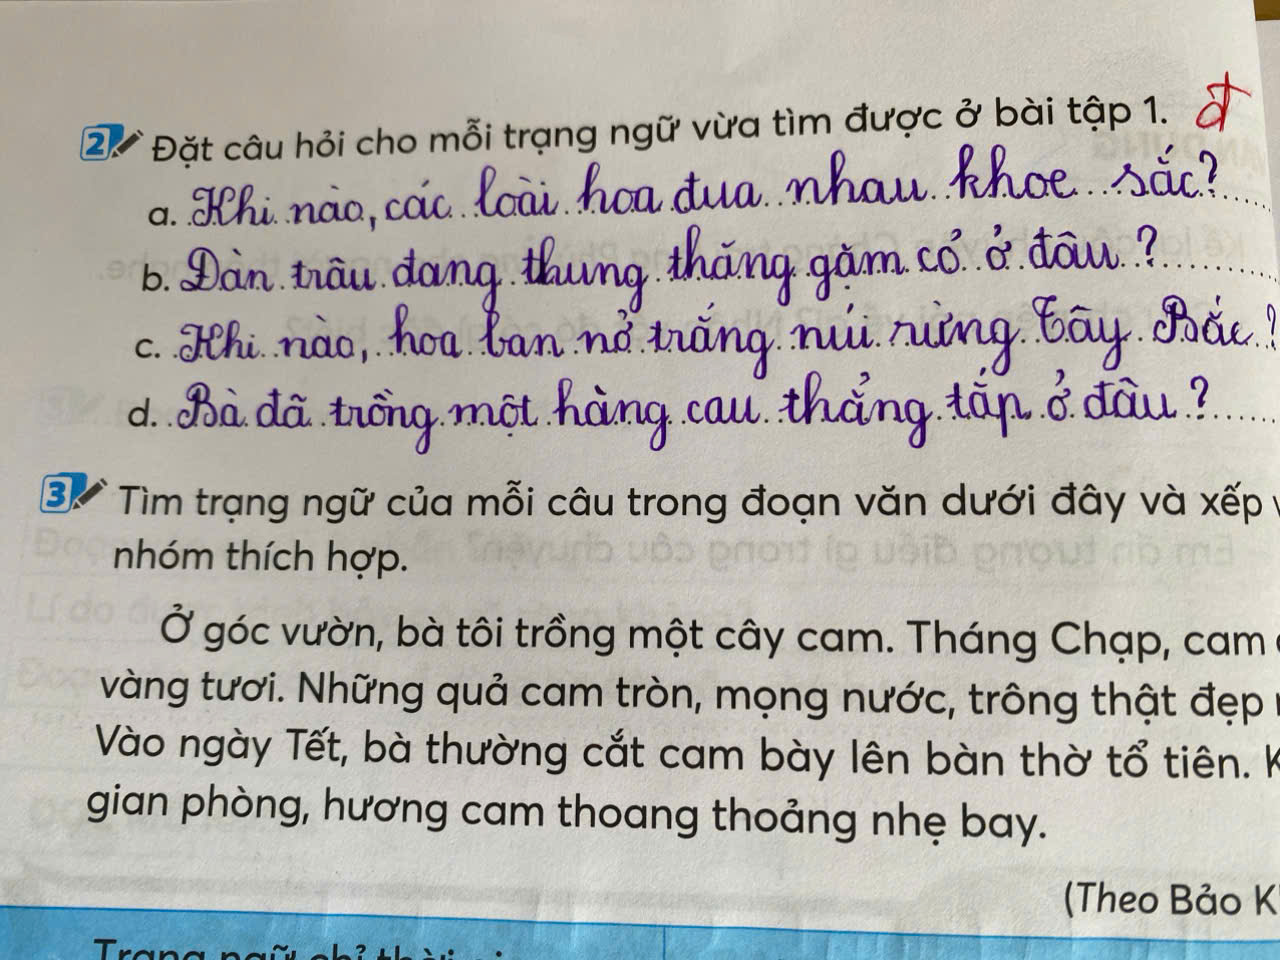 2 Đặt câu hỏi cho mỗi trạng ngữ vừa tìm được ở bài tập 1. đ
a. Khi nào, các loài hoa đua nhau khoe sắc?
b. Đàn trâu đang thung thăng gặm cỏ ở đâu?
c. Khi nào, hoa ban nở trắng núi rừng Tây Bắc?
d. Bà đã trồng một hàng cau thẳng tắp ở đâu?
3 Tìm trạng ngữ của mỗi câu trong đoạn văn dưới đây và xếp
nhóm thích hợp.
Ở góc vườn, bà tôi trồng một cây cam. Tháng Chạp, cam
vàng tươi. Những quả cam tròn, mọng nước, trông thật đẹp
Vào ngày Tết, bà thường cắt cam bày lên bàn thờ tổ tiên. K
gian phòng, hương cam thoang thoảng nhẹ bay.
(Theo Bảo K
Trạng ngữ chỉ thời